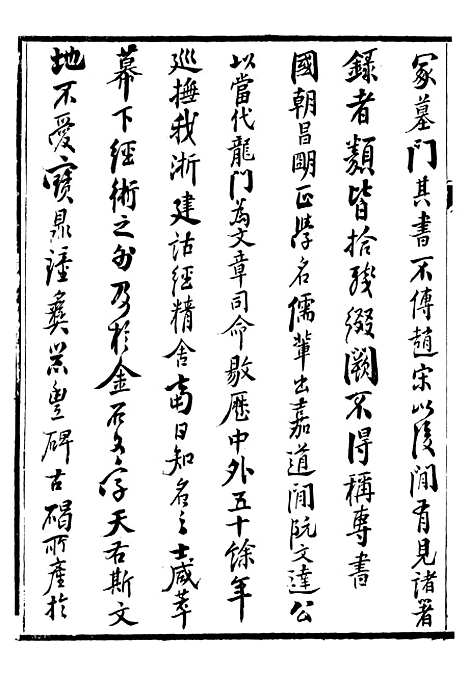 冢墓門其書不傳趙宋以後閒有見諸著
錄者類皆拾殘綴闕不得稱專書
國朝昌明正學名儒輩出嘉道閒阮文達公
以當代龍門為文章司命敭歷中外五十餘年
巡撫我浙建詁經精舍當日知名之士咸萃
幕下經術之外乃於金石文字天右斯文
地不愛寶鼎鍾彝器豐碑古碣所產於